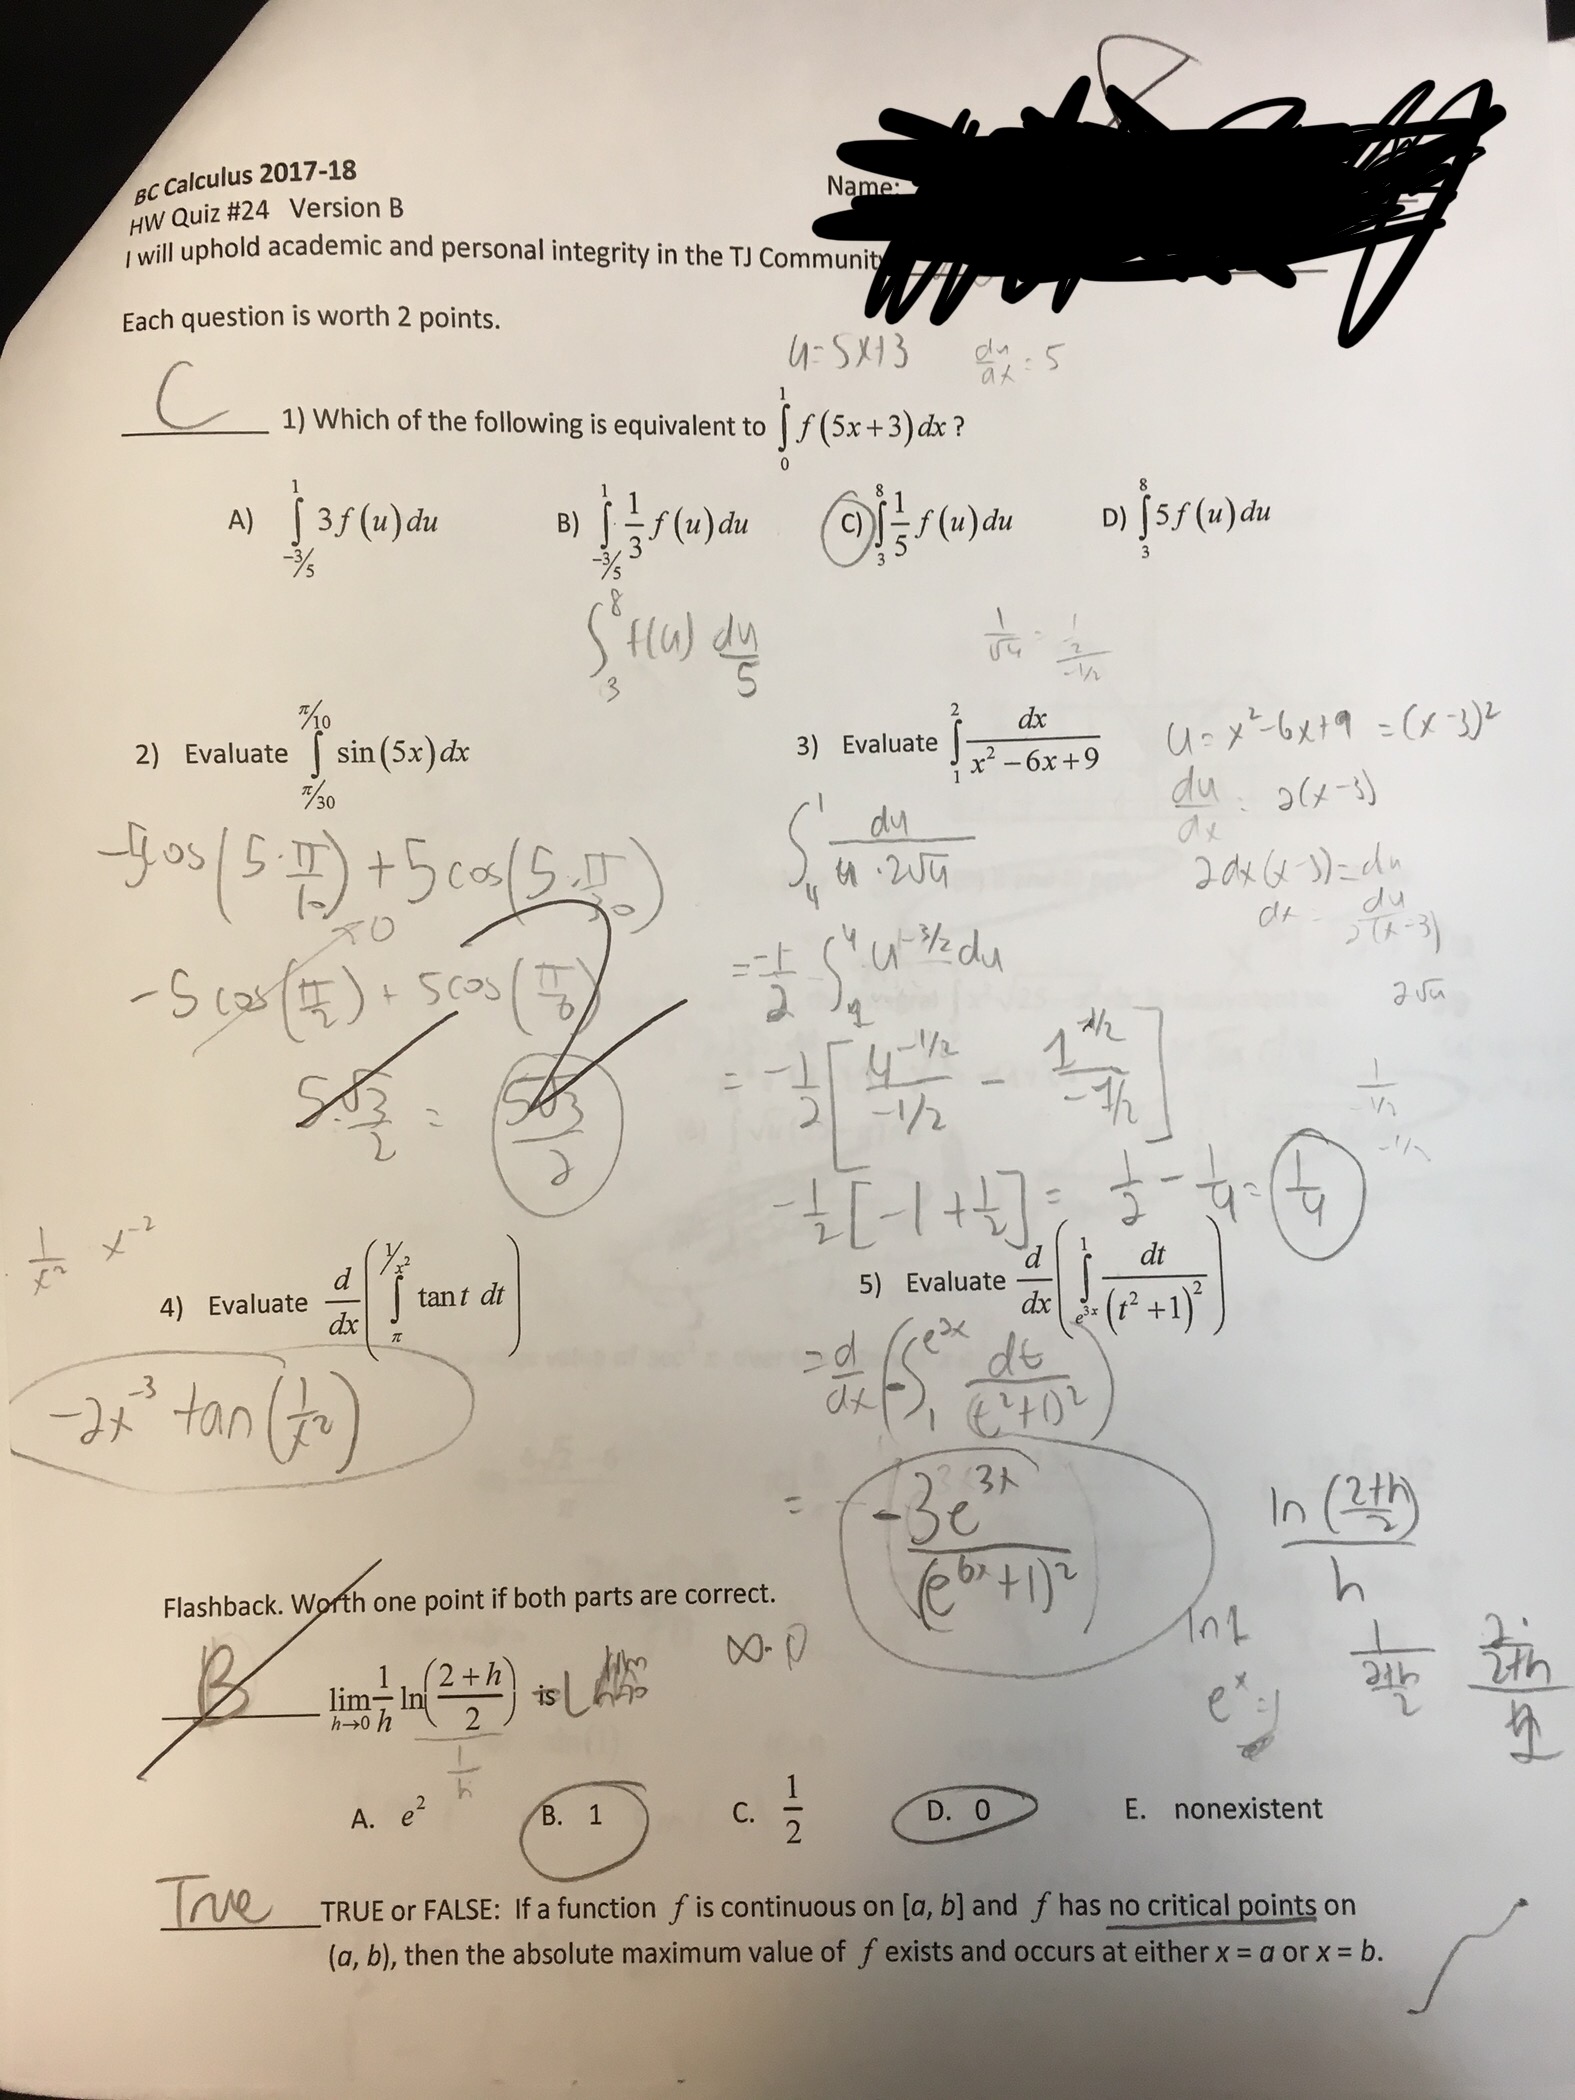 8
BC Calculus 2017-18
HW Quiz #24 Version B
Name:
I will uphold academic and personal integrity in the TJ Communit
Each question is worth 2 points.
u=5x+3 du/dx = 5
C 1) Which of the following is equivalent to ∫₀¹ f(5x+3)dx ?
A) ∫_{-3/5}^{1} 3f(u)du B) ∫_{-3/5}^{1} 1/3 f(u)du C) ∫_{3}^{8} 1/5 f(u)du D) ∫_{3}^{8} 5f(u)du
∫_{3}^{8} f(u) du/5
2) Evaluate ∫_{π/30}^{π/10} sin(5x)dx
-5cos(5·π/10) + 5cos(5·π/30)
-5cos(π/2) + 5cos(π/6)
5·√3/2 = 5√3/2
2
1/√u = 
3) Evaluate ∫_{1}^{2} dx/(x²-6x+9)
u = x²-6x+9 = (x-3)²
du/dx = 2(x-3)
2dx(x-3)=du
dx = du/2(x-3)
2√u
∫_{4}^{1} du/(u·2√u)
= -1/2 ∫_{1}^{4} u^{-3/2} du
= -1/2 [4^{-1/2}/(-1/2) - 1^{-1/2}/(-1/2)]
-1/2 [-1+1/2] = 1/2 - 1/4 = 1/4
1/x² x^{-2}
4) Evaluate d/dx(∫_{π}^{1/x²} tan t dt)
-2x^{-3} tan(1/x²)
5) Evaluate d/dx(∫_{e^{3x}}^{1} dt/(t²+1)²)
= d/dx(-∫_{1}^{e^{3x}} dt/(t²+1)²)
= -3e^{3x}/(e^{6x}+1)²
ln(2+h/2)/h
Flashback. Worth one point if both parts are correct.
B lim_{h→0} 1/h ln((2+h)/2) is
∞·0
1/h
ln1
e^x=1
A. e² B. 1 C. 1/2 D. 0 E. nonexistent
True TRUE or FALSE: If a function f is continuous on [a, b] and f has no critical points on
(a, b), then the absolute maximum value of f exists and occurs at either x = a or x = b.